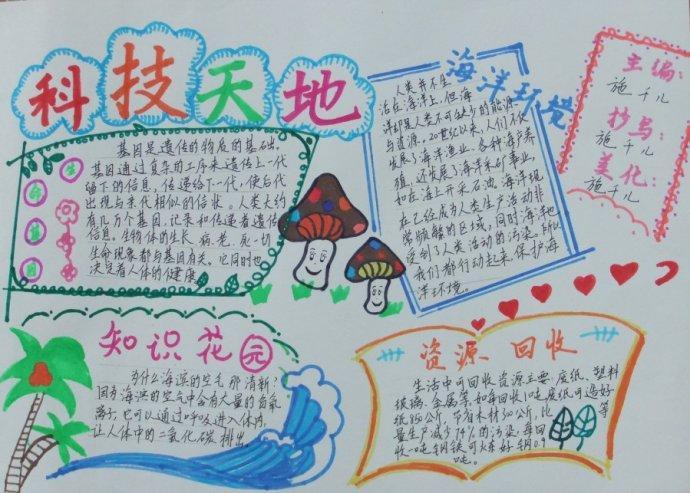 科技天地
生命基因
基因是遗传的物质的基础。
基因通过复杂的工序来遗传上一代
留下的信息，传递给下一代，使后代
出现与亲代相似的信状。人类大约
有几万个基因，记录和传递者遗传
信息。生物体的生长、病、老、死一切
生命现象都与基因有关。它同时也
决定着人体的健康
海洋环境
人类并不生
活在海洋上，但海
洋却是人类不可缺少的能源
与资源。20世纪以来，人们不仅
发展了海洋渔业、各种海产养
殖，还发展了海洋采矿事业，
和在海上开采石油，海洋现
在已经成为人类生产活动非
常频繁的区域，同时海洋也
受到了人类活动的污染。所以
我们都行动起来，保护海
洋环境。
主编：
施千儿
抄写：
施千儿
美化：
施千儿
知识花园
为什么海滨的空气那清新？
因为海滨的空气中含有大量的负氧
离子，它可以通过呼吸进入体内，
让人体中的二氧化碳排出。
资源 回收
生活中可回收资源主要：废纸、塑料
玻璃、金属等，如每回收1吨废纸可造好
纸850公斤，节省木材300公斤，比
等
量生产减少74%的污染，每回
收一吨钢铁可火东好钢0.9
吨。